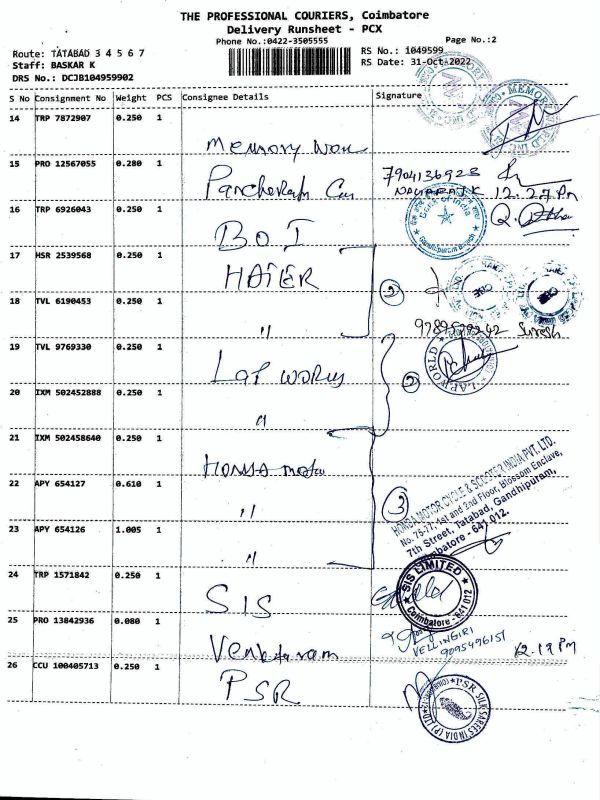 THE PROFESSIONAL COURIERS, Coimbatore
Delivery Runsheet - PCX
Phone No.:0422-3505555
Page No.:2
Route: TATABAD 3 4 5 6 7
RS No.: 1049599
Staff: BASKAR K
RS Date: 31-Oct-2022
DRS No.: DCJB104959902
S No Consignment No Weight PCS Consignee Details Signature
14 TRP 7872907 0.250 1
Memory
MEMOR
15 PRO 12567055 0.280 1
7904136928
NAGARAJ.K 12.27 Pm
16 TRP 6926043 0.250 1
B.O.I
Bank of India
Gandhipuram Branch
17 HSR 2539568 0.250 1
HAIER
2
18 TVL 6190453 0.250 1
"
Suresh
19 TVL 9769330 0.250 1
LAPWORLD
2
20 IXM 502452888 0.250 1
"
21 IXM 502458640 0.250 1
HONDA Motor
HONDA MOTOR CYCLE & SCOOTER INDIA PVT. LTD.
No. 75-77, 1st and 2nd Floor, Blossom Enclave,
7th Street, Tatabad, Gandhipuram,
Coimbatore - 641 012.
22 APY 654127 0.610 1
"
3
23 APY 654126 1.005 1
"
24 TRP 1571842 0.250 1
SIS
SIS LIMITED
Coimbatore - 641 012
25 PRO 13842936 0.080 1
Venkataram
VELLINGIRI
9095496151
12.19 PM
26 CCU 100405713 0.250 1
PSR
PSR SILK SAREES INDIA (P) LTD